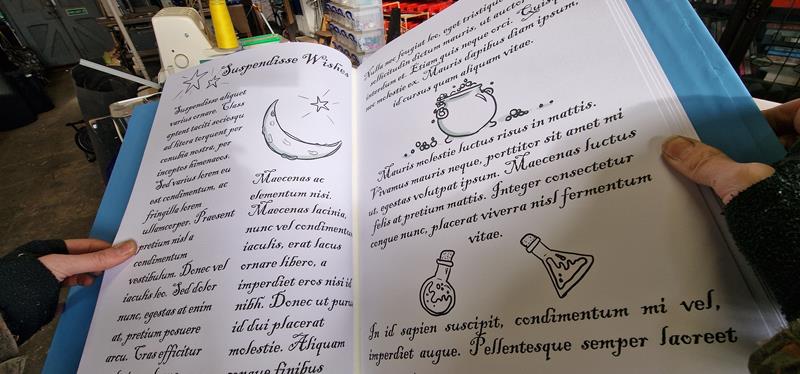 Suspendisse Wishes
Suspendisse aliquet
varius ornare. Class
aptent taciti sociosqu
ad litora torquent per
conubia nostra, per
inceptos himenaeos.
Sed varius lorem eu
est condimentum, ac
fringilla lorem
ullamcorper. Praesent
pretium nisl a
condimentum
vestibulum. Donec vel
iaculis leo. Sed dolor
nunc, egestas at enim
at, pretium posuere
arcu. Cras efficitur
Maecenas ac
elementum nisi.
Maecenas lacinia,
nunc vel condimentum
iaculis, erat lacus
ornare libero, a
imperdiet eros nisi id
nibh. Donec ut purus
id dui placerat
molestie. Aliquam
congue finibus
Nulla nec feugiat leo, eget tristique
sollicitudin dictum mauris, ut auctor
interdum et. Etiam quis neque orci.
nec molestie ex. Mauris dapibus diam ipsum,
id cursus quam aliquam vitae.
Mauris molestie luctus risus in mattis.
Vivamus mauris neque, porttitor sit amet mi
ut, egestas volutpat ipsum. Maecenas luctus
felis at pretium mattis. Integer consectetur
congue nunc, placerat viverra nisl fermentum
vitae.
In id sapien suscipit, condimentum mi vel,
imperdiet augue. Pellentesque semper laoreet